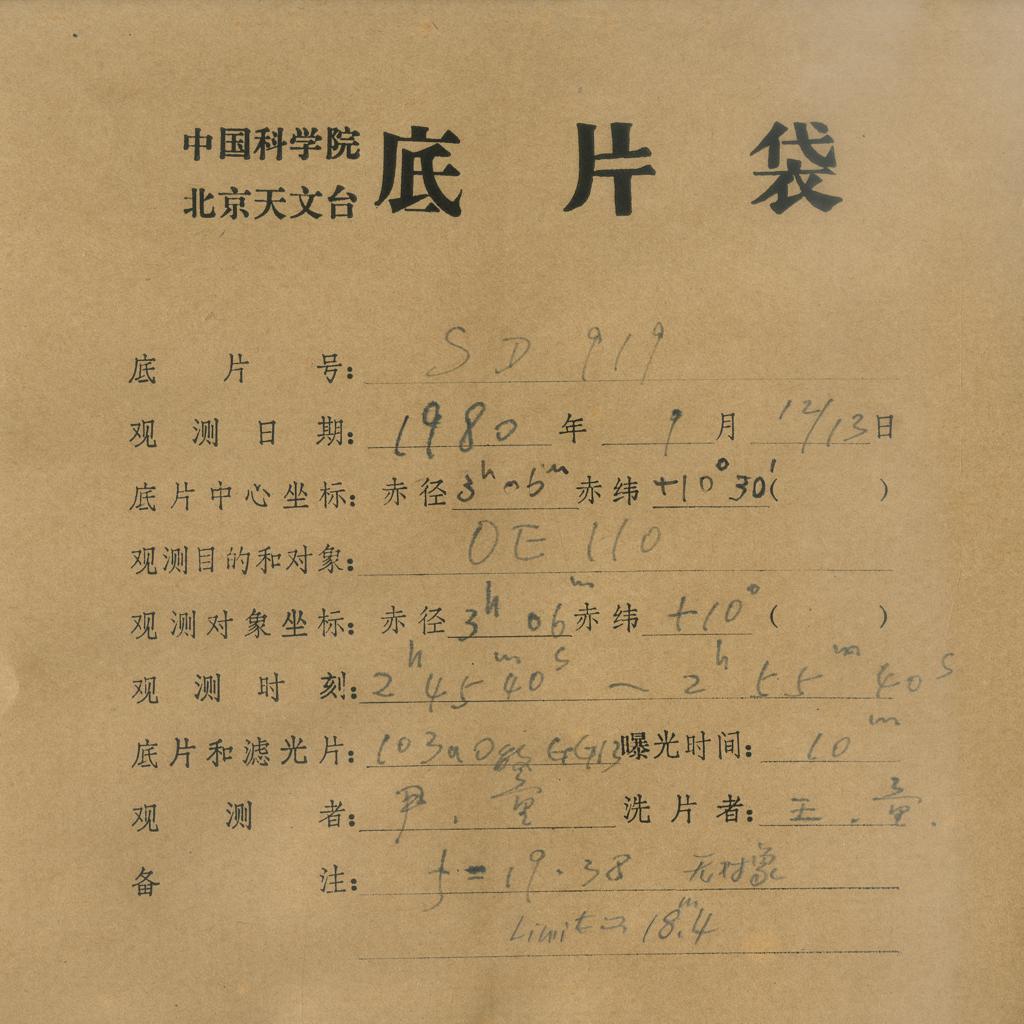 中国科学院
北京天文台
底片袋
底片号: SD 919
观测日期: 1980 年 9 月 12/13 日
底片中心坐标: 赤径 3h 06m 赤纬 +10° 30′ ( )
观测目的和对象: OE 110
观测对象坐标: 赤径 3h 06m 赤纬 +10° ( )
观测时刻: 2h 45m 40s ~ 2h 55m 40s
底片和滤光片: 103aO GG13 曝光时间: 10m
观测者: 尹. 童 洗片者: 王. 童.
备注: f = 19.38 无对象
Limit 18m.4